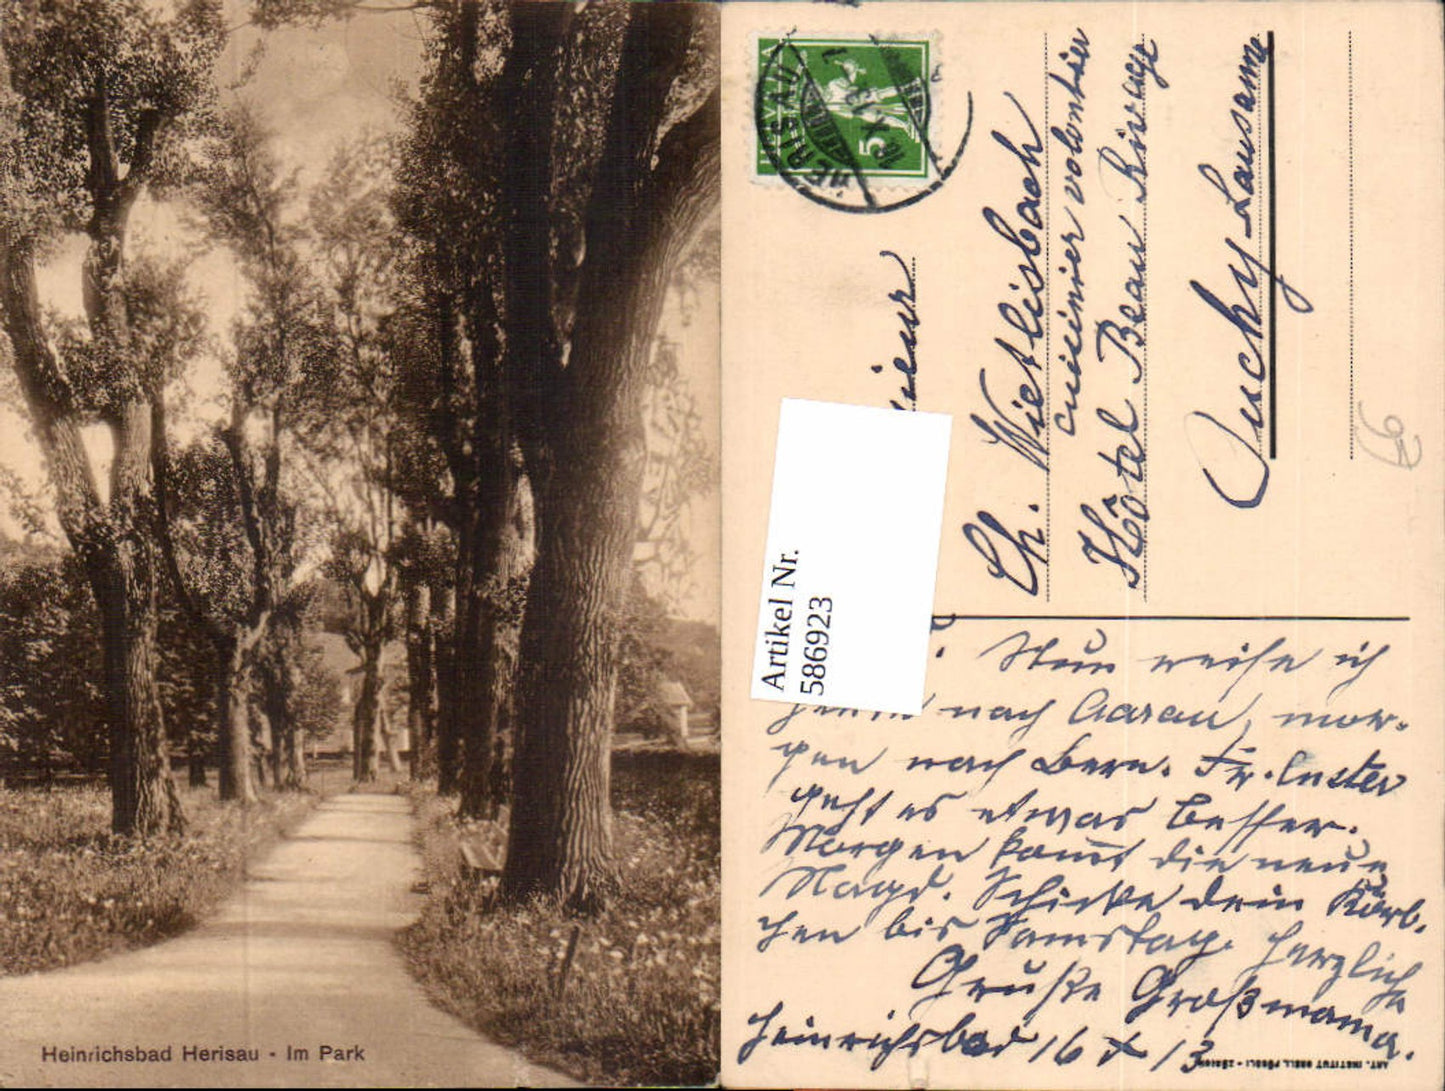 Heinrichsbad Herisau - Im Park
HERISAU
16.X.13
HELVETIA
5
Ch. Wietlisbach
cuisinier volontär
Hôtel Beau Rivage
Ouchy Lausanne
Artikel Nr.
586923
Nun reise ich
heute nach Aarau, mor-
gen nach Bern. Fr.
geht es etwas besser.
Morgen kommt die neue
Magd. Schicke dein Körb-
chen bis Samstag. Herzliche
Grüße Großmama.
Heinrichsbad 16 X 13
ART. INSTITUT ORELL FÜSSLI - ZÜRICH